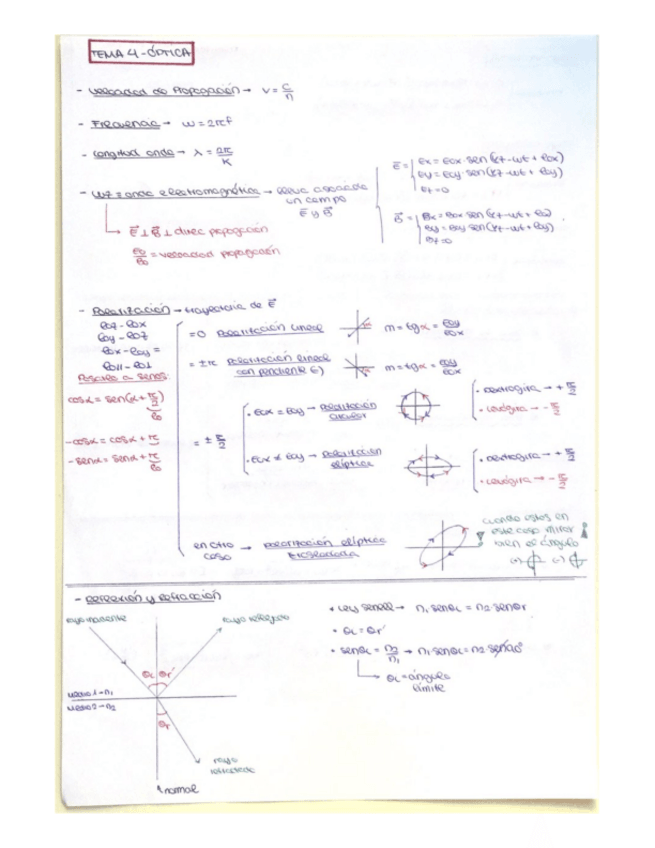 TEMA 4 - ÓPTICA
- Velocidad de Propagación → v = c/n
- Frecuencia → ω = 2πf
- Longitud onda → λ = 2π/K
- Luz = onda electromagnética → lleva asociada
un campo
E⃗ y B⃗
E⃗ = Ex = Eox · sen (kz - ωt + φox)
Ey = Eoy · sen (kz - ωt + φoy)
Ez = 0
B⃗ = Bx = Box sen (kz - ωt + φo)
By = Boy sen (kz - ωt + φoy)
Bz = 0
E⃗ ⊥ B⃗ ⊥ direc propagación
Eo/Bo = velocidad propagación
- Polarización → trayectoria de E⃗
φox - φoy =
φo|| - φo⊥
Pasarlo a senos:
cos α = sen (α + π/2)
- cos α = cos α + π
- sen α = sen α + π
= 0 Polarización lineal
m = tg α = Eoy/Eox
= ±π Polarización lineal
con pendiente (-)
m = tg α = Eoy/Eox
= ± π/2
· Eox = Eoy → Polarización
circular
· dextrógira → + π/2
· Levógira → - π/2
· Eox ≠ Eoy → Polarización
elíptica
· dextrógira → + π/2
· Levógira → - π/2
en otro
caso → polarización elíptica
cuando estes en
este caso mirar
bien el ángulo
(+) (-)
- Reflexión y Refracción
rayo incidente
rayo reflejado
θi θr'
medio 1 - n1
medio 2 - n2
θr
rayo
refractado
normal
· Ley Snell → n1 · sen θi = n2 · sen θr
· θi = θr'
· sen θi = n2/n1 → n1 sen θi = n2 · sen 90°
θi = ángulo
límite